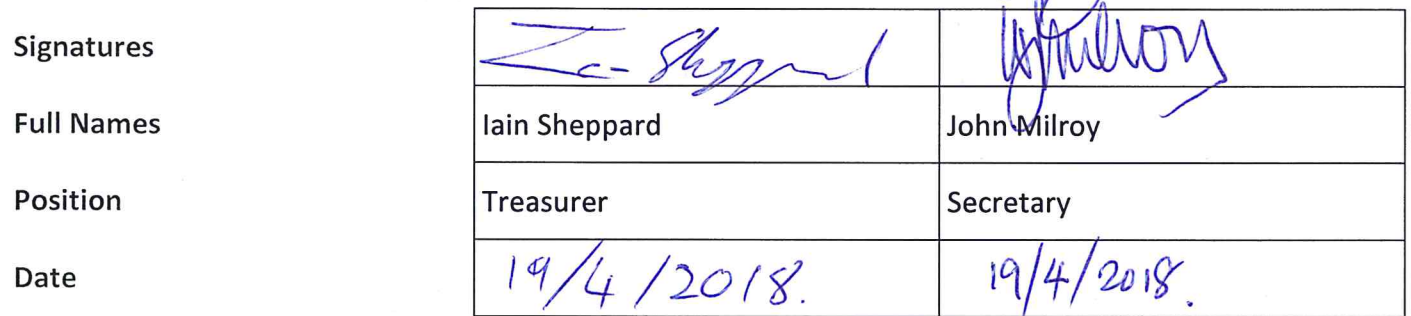 Signatures Iain Sheppard JMilroy
Full Names Iain Sheppard John Milroy
Position Treasurer Secretary
Date 19/4/2018. 19/4/2018.